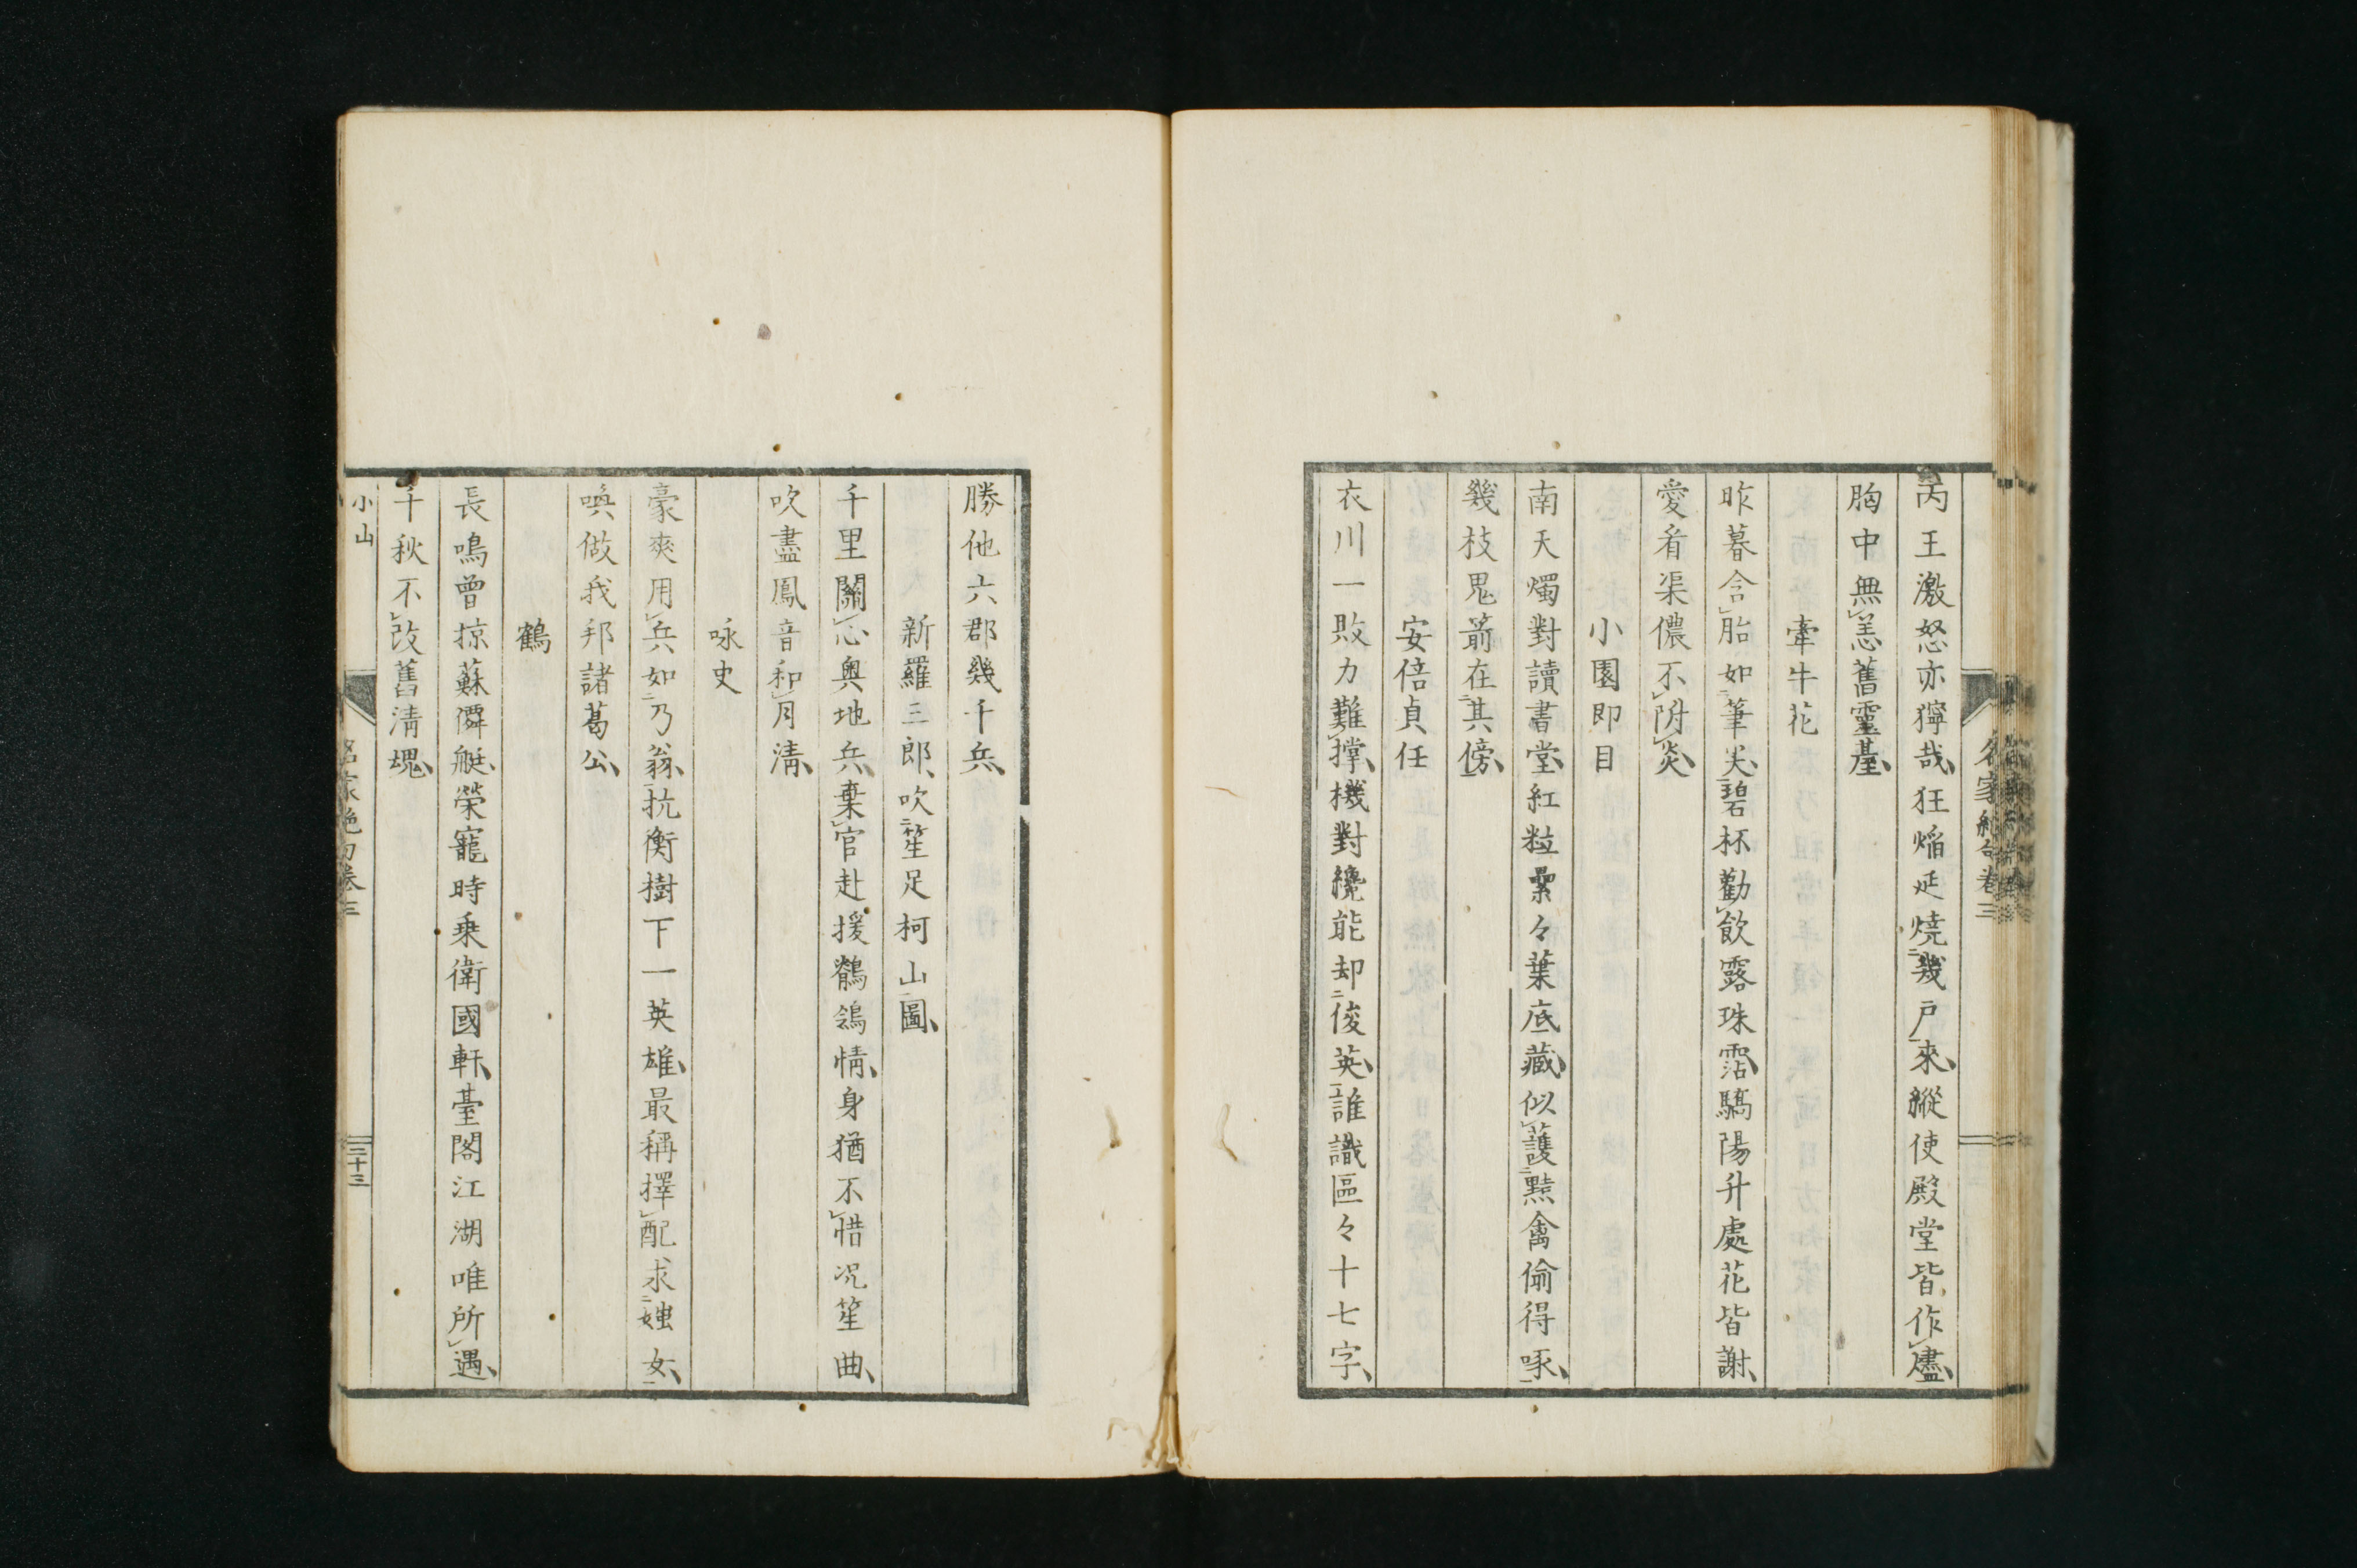 丙王激怒亦獰哉狂焔延燒幾戶來縱使殿堂皆作燼
胸中無恙舊靈臺
牽牛花
昨暮含胎如筆尖碧杯勸飲露珠霑驕陽升處花皆謝
愛看渠儂不附炎
小園即目
南天燭對讀書堂紅粒纍々葉底藏似護黠禽偷得啄
幾枝鬼箭在其傍
安倍貞任
衣川一敗力難撐機對纔能却俊英誰識區々十七字
勝他六郡幾千兵
新羅三郎吹笙足柯山圖
千里關心奧地兵棄官赴援鶺鴒情身猶不惜況笙曲
吹盡鳳音和月清
咏史
豪爽用兵如乃翁抗衡樹下一英雄最稱擇配求媸女
喚做我邦諸葛公
鶴
長鳴曾掠蘇僊艇榮寵時乘衛國軒臺閣江湖唯所遇
千秋不改舊清魂
小山
名家絶句卷三
三十三